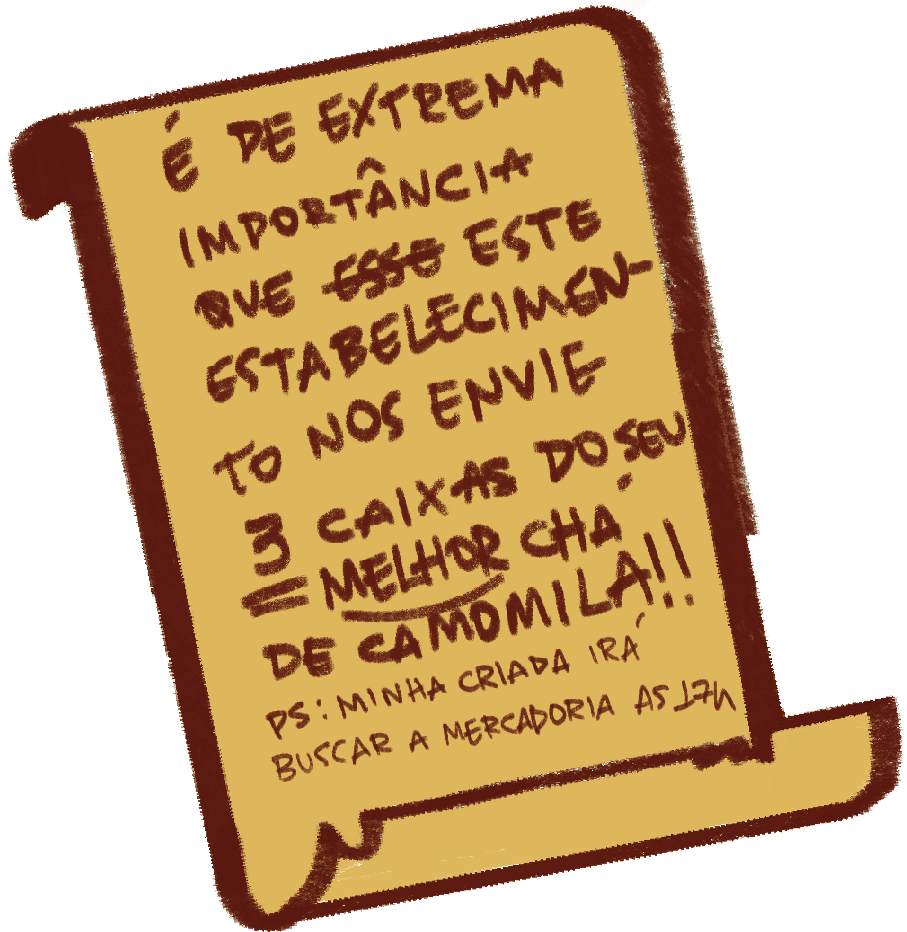 É DE EXTREMA
IMPORTÂNCIA
QUE ESSE ESTE
ESTABELECIMEN-
TO NOS ENVIE
3 CAIXAS DO SEU
MELHOR CHÁ
DE CAMOMILA!!
PS: MINHA CRIADA IRÁ
BUSCAR A MERCADORIA AS 17h